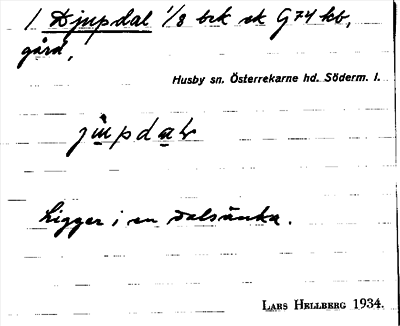 1 Djupdal 1/8 brk sk G 74 kb,
gård,
Husby sn. Österrekarne hd. Söderm. l.
Ligger i en dalsänka.
LARS HELLBERG 1934.